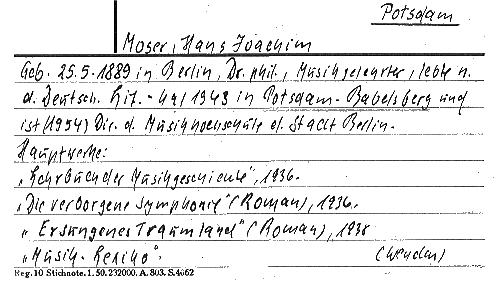 Potsdam
Moser, Hans Joachim
Geb. 25.5.1889 in Berlin, Dr. phil., Musikgelehrter, lebte n.
d. Deutsch. Lit.-Ka 1943 in Potsdam-Babelsberg und
ist (1954) Dir. d. Musikhochschule d. Stadt Berlin.
Hauptwerke:
„Lehrbuch der Musikgeschichte", 1936.
„Die verborgene Symphonie" (Roman), 1936.
„Ersungenes Traumland" (Roman), 1938
„Musik-Lexikon".
(wenden)
Reg. 10 Stichnote. 1. 50. 232000. A. 803. S. 4662